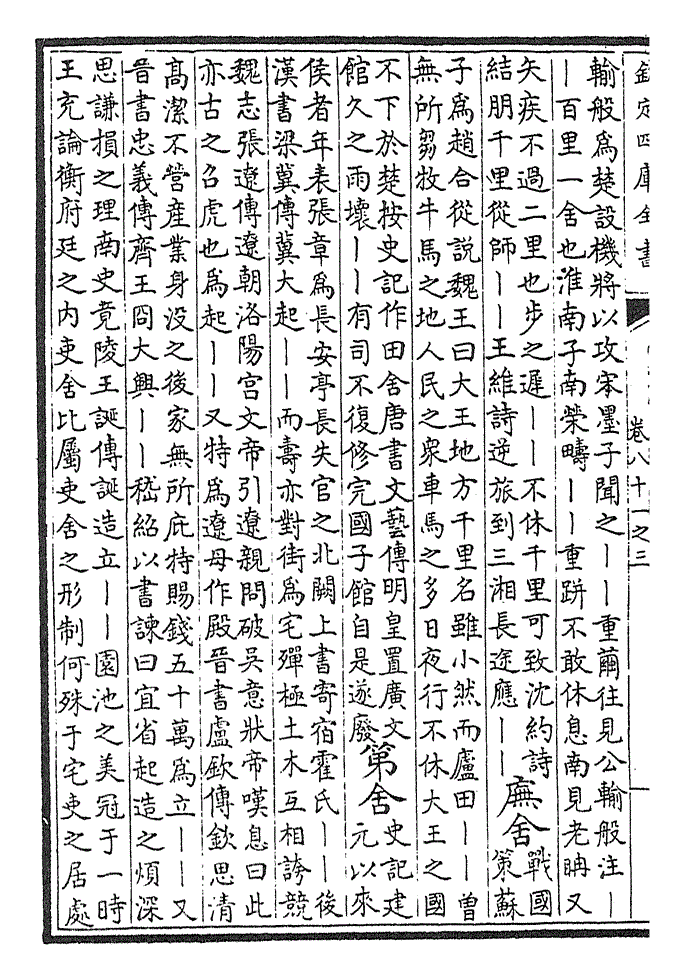 欽定四庫全書
卷八十一之三
輸般為楚設機將以攻宋墨子聞之丨丨重繭往見公輸般注丨
丨百里一舍也淮南子南榮疇丨丨重跰不敢休息南見老聃又
矢疾不過二里也步之遲丨丨不休千里可致沈約詩
結朋千里從師丨丨王維詩逆旅到三湘長途應丨丨
廡舍
戰國
策蘇
子為趙合從說魏王曰大王地方千里名雖小然而廬田丨丨曽
無所芻牧牛馬之地人民之衆車馬之多日夜行不休大王之國
不下於楚按史記作田舍唐書文藝傳明皇置廣文
館久之雨壞丨丨有司不復修完國子館自是遂廢
第舍
史記建
元以來
侯者年表張章為長安亭長失官之北闕上書寄宿霍氏丨丨後
漢書梁冀傳冀大起丨丨而壽亦對街為宅殫極土木互相誇競
魏志張遼傳遼朝洛陽宫文帝引遼親問破吳意狀帝嘆息曰此
亦古之召虎也為起丨丨又特為遼母作殿晉書盧欽傳欽思清
髙潔不營産業身没之後家無所庇特賜錢五十萬為立丨丨又
晉書忠義傳齊王冏大興丨丨嵇紹以書諫曰宜省起造之煩深
思謙損之理南史竟陵王誕傳誕造立丨丨園池之美冠于一時
王充論衡府廷之内吏舍比屬吏舍之形制何殊于宅吏之居處